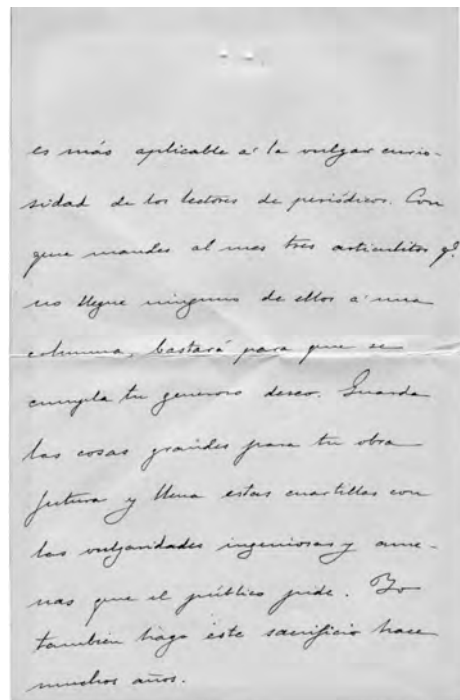 es más aplicable á la vulgar curio-
sidad de los lectores de periódicos. Con
que mandes al mes tres articulitos q.e
no llegue ninguno de ellos á una
columna, bastará para que se
cumpla tu generoso deseo. Guarda
las cosas grandes para tu obra
futura y llena estas cuartillas con
las vulgaridades ingeniosas y ame-
nas que el público pide. Yo
tambien hago este sacrificio hace
muchos años.